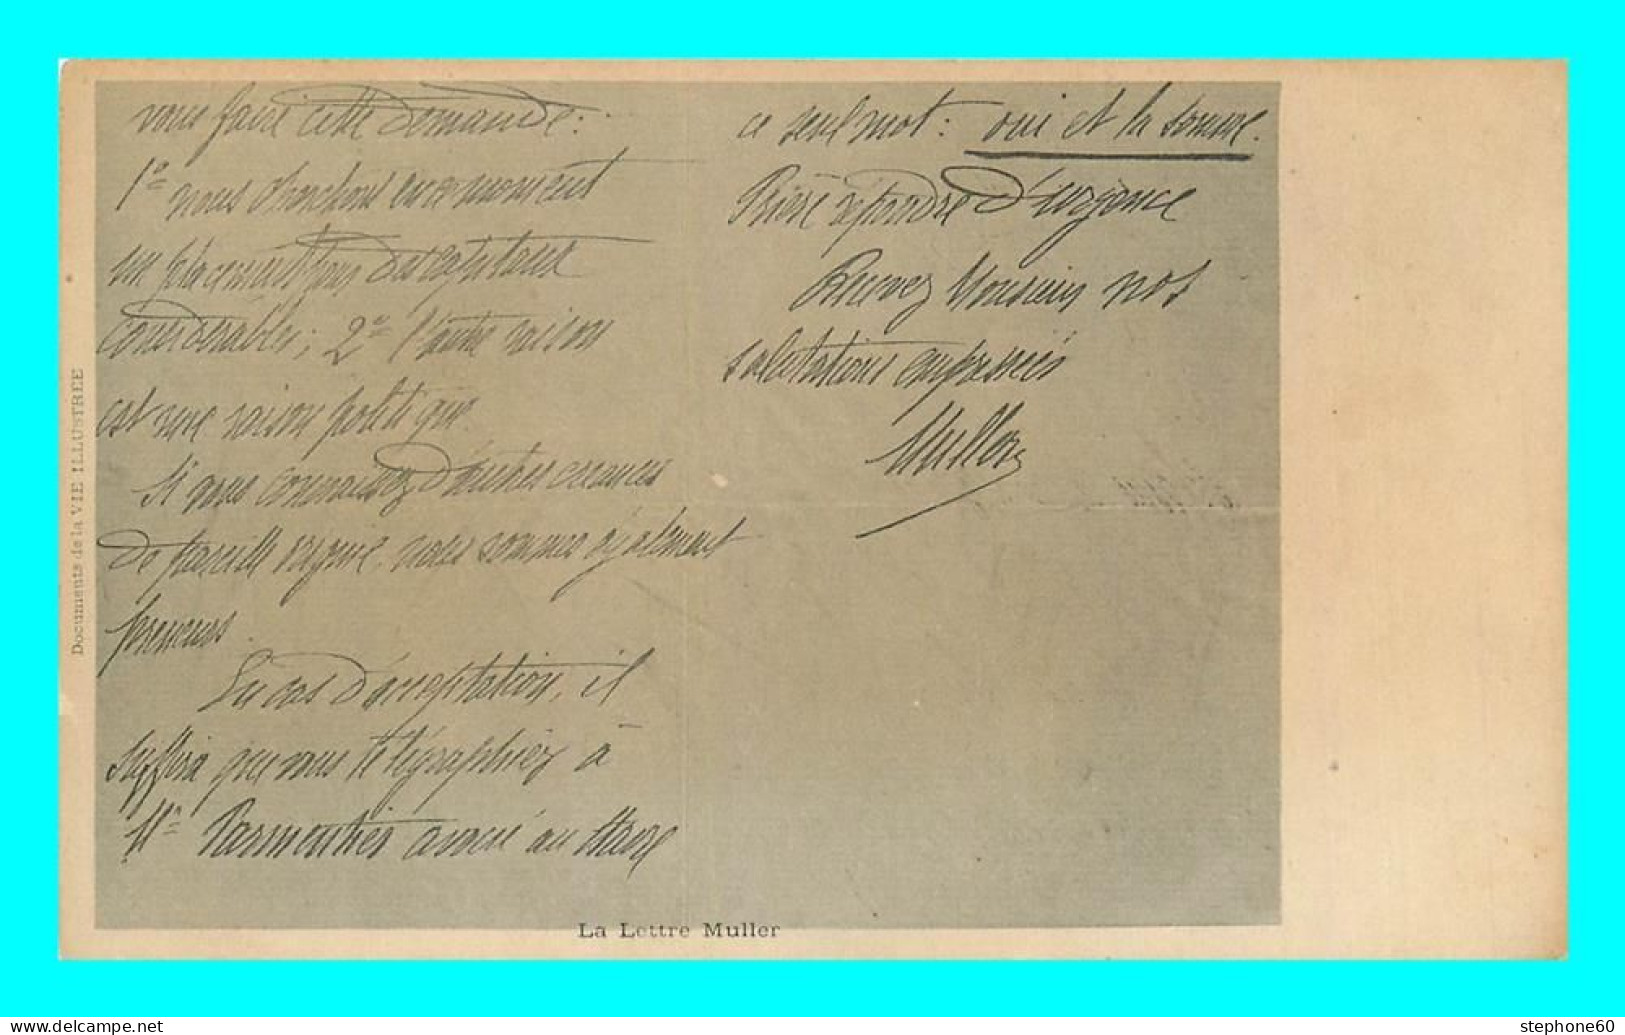 vous faire cette demande :
1º nous cherchons en ce moment
un placement pour des capitaux
considérables ; 2º l'autre raison
est une raison politique.
Si vous connaissez d'autres créances
de pareille origine, nous sommes également
preneurs.
En cas d'acceptation, il
suffira que vous télégraphiez à
Mº Parmentier avoué au Havre
ce seul mot : oui et la somme.
Prière répondre d'urgence
Recevez Monsieur nos
salutations empressées
Muller
La Lettre Muller
Documents de la VIE ILLUSTRÉE
www.delcampe.net
stephone60